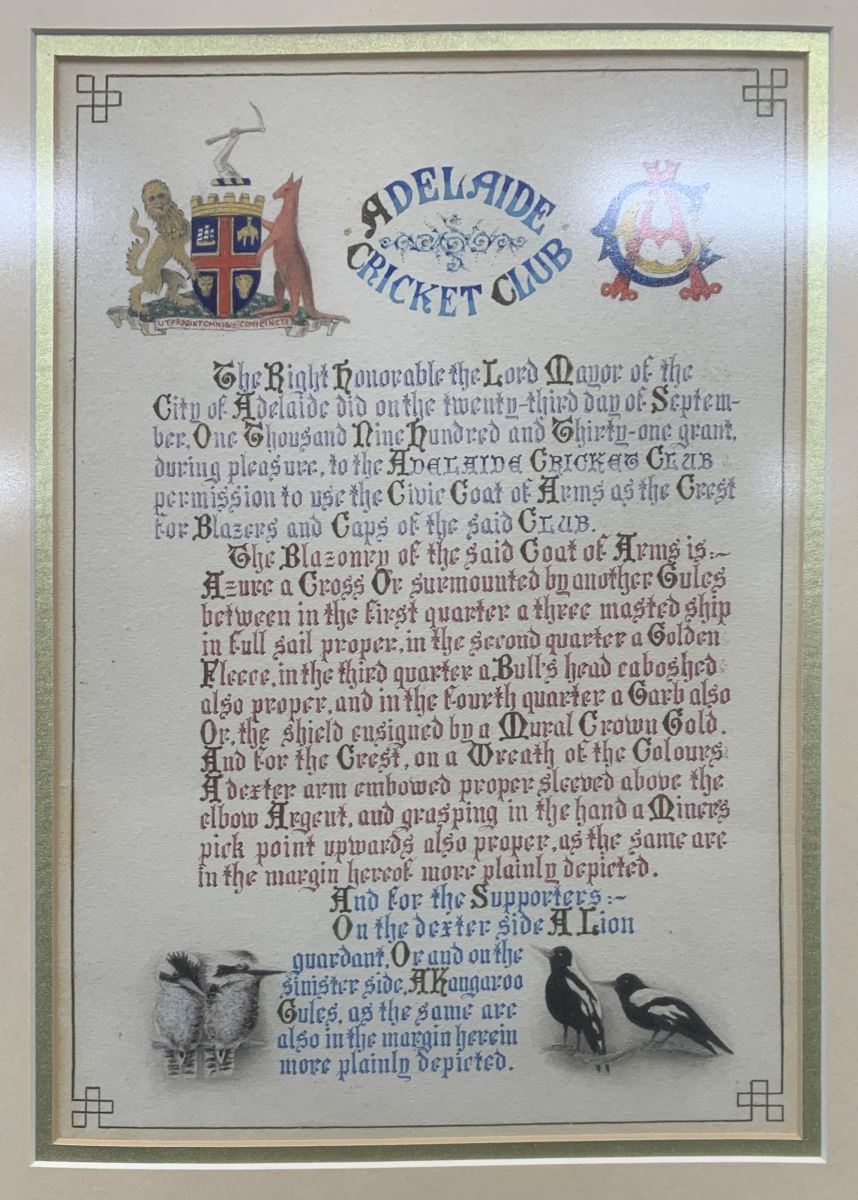 ADELAIDE
CRICKET CLUB
UT PROSINT OMNIBUS CONIUNCTI
The Right Honorable the Lord Mayor of the
City of Adelaide did on the twenty-third day of Septem-
ber, One Thousand Nine Hundred and Thirty-one grant,
during pleasure, to the ADELAIDE CRICKET CLUB
permission to use the Civic Coat of Arms as the Crest
for Blazers and Caps of the said CLUB.
The Blazonry of the said Coat of Arms is:~
Azure a Cross Or surmounted by another Gules
between in the first quarter a three masted ship
in full sail proper, in the second quarter a Golden
Fleece, in the third quarter a Bull's head caboshed
also proper, and in the fourth quarter a Garb also
Or, the shield ensigned by a Mural Crown Gold.
And for the Crest, on a Wreath of the Colours
A dexter arm embowed proper sleeved above the
elbow Argent, and grasping in the hand a Miners
pick point upwards also proper, as the same are
in the margin hereof more plainly depicted.
And for the Supporters:~
On the dexter side A Lion
guardant, Or and on the
sinister side, A Kangaroo
Gules, as the same are
also in the margin herein
more plainly depicted.